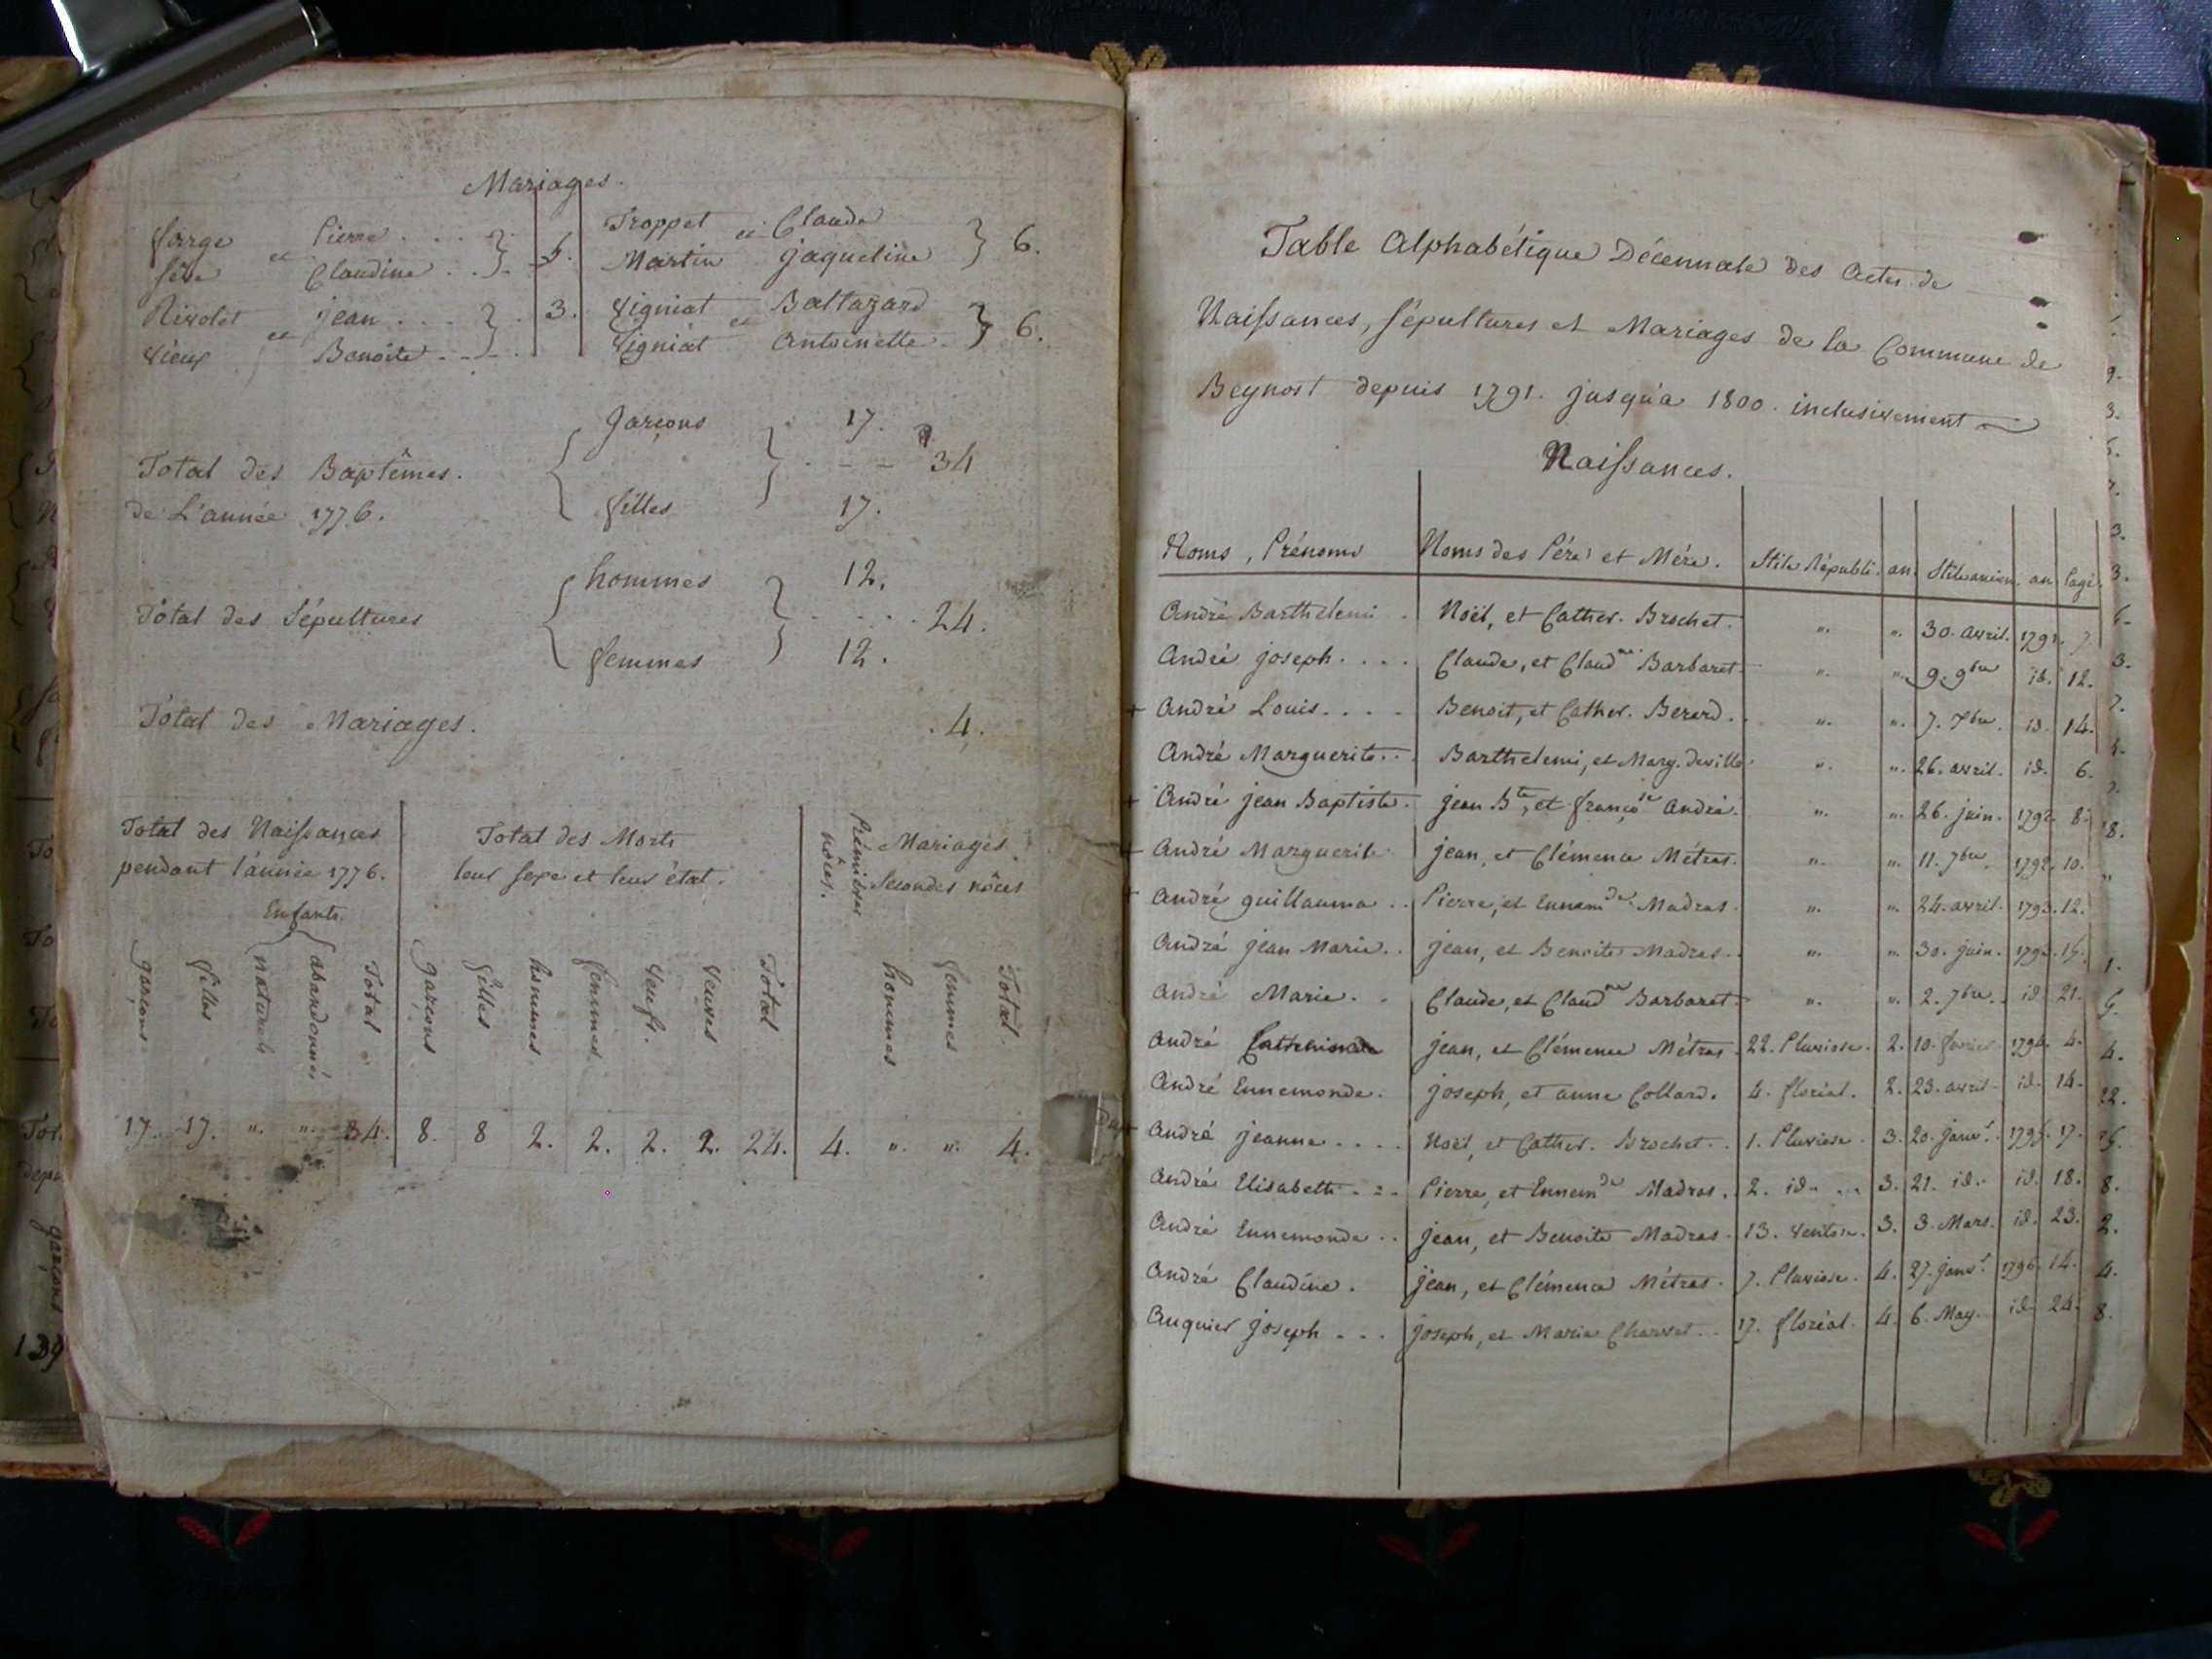 Mariages.
forge et Pierre . . . } 5.
sève Claudine . . }
Rivolet et jean . . . } 3.
vieux Benoite - - -
Troppet et Claude } 6.
Martin jaqueline
Vigniat et Baltazard } 6.
Vigniat Antoinette
Garçons 17.
Total des Baptêmes. 34
de L'année 1776.
filles 17.
hommes 12.
Total des Sépultures 24.
femmes 12.
Total des Mariages. 4.
Total des Naissances
pendant l'année 1776.
Enfants
garçons filles naturels abandonnés Total
Total des Morts
leur sexe et leur état.
garçons filles hommes femmes veufs. veuves Total
Premières nôces. Mariages
Secondes nôces
hommes femmes Total.
17. 17. " " 34. 8. 8 2. 2. 2. 2. 24. 4. " " 4.
Table Alphabétique Décennale des Actes de
Naissances, Sépultures et Mariages de la Commune de
Beynost depuis 1791. jusqu'a 1800. inclusivement
Naissances.
Noms, Prénoms Noms des Père et Mére. Stile Républi. an. Stile ancien. an page
André Barthelemi . Noël, et Cather. Brochet. " " 30. avril. 1791. 7
André joseph . . . . Claude, et Claudne Barbaret. " " 9. 9bre id. 12.
+ André Louis . . . . Benoit, et Cather. Berard. " " 7. 7bre. id. 14.
André Marguerite . . Barthelemi, et Marg. Deville " " 26. avril. id. 6.
+ André jean Baptiste. jean Bte, et françose André. " " 26. juin. 1792. 8.
+ André Marguerite jean, et Clémence Métras. " " 11. 7bre. 1792. 10.
+ André guillaume . . Pierre, et Ennemde Madras. " " 24. avril. 1793. 12.
André jean Marie . . jean, et Benoite Madras. " " 30. juin. 1793. 15.
André Marie . . Claude, et Claudne Barbaret. " " 2. 7bre. id. 21.
André jean, et Clémence Métras. 22. Pluviose. 2. 10. 1794. 4.
André Ennemonde. joseph, et anne Collard. 4. floréal. 2. 23. avril. id. 14.
André jeanne . . . . Noël, et Cather. Brochet. . 1. Pluviose. 3. 20. janvr. 1795. 17.
André Elisabeth - - - Pierre, et Ennemde Madras. 2. id. . . 3. 21. id. id. 18.
André Ennemonde . . jean, et Benoite Madras. 13. ventose. 3. 3. Mars. id. 23.
André Claudine . jean, et Clémence Métras. 7. Pluviose. 4. 27. janvr. 1796. 14.
Auquier joseph . . . joseph, et Marie Charvet. . 17. floréal. 4. 6. May. id. 24.